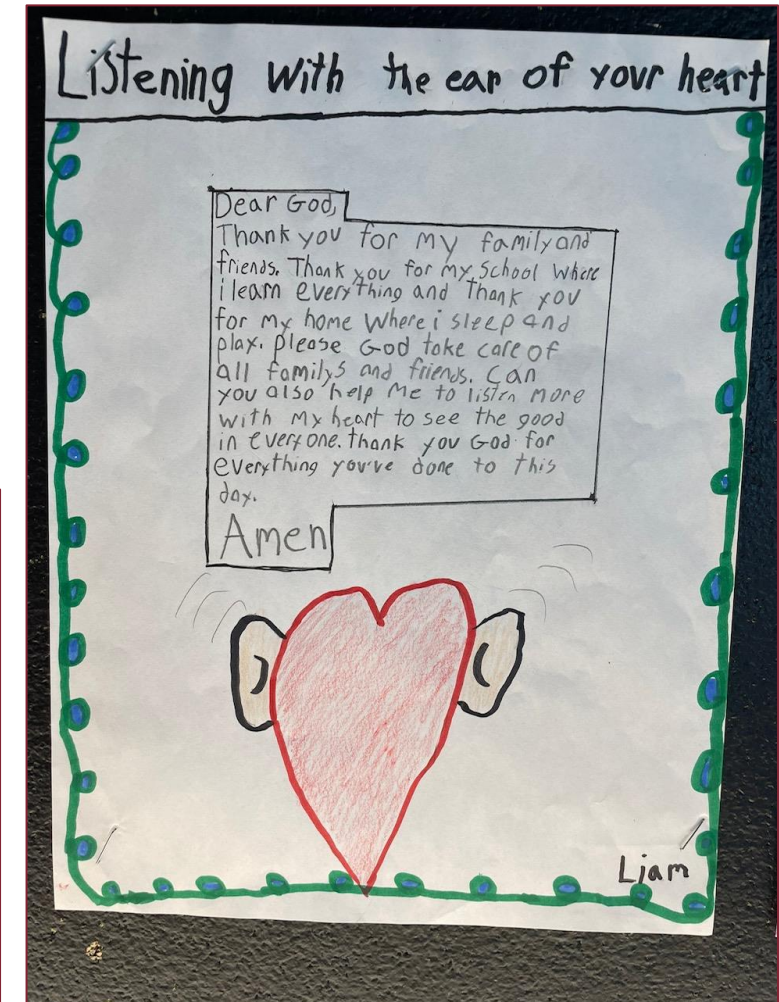 Listening with the ear of your heart
Dear God,
Thank you for my family and
friends. Thank you for my School Where
i learn everything and Thank you
for my home Where i sleep and
play. please God take care of
all familys and friends. Can
you also help me to listen more
with my heart to see the good
in everyone. thank you God for
everything you've done to this
day.
Amen
Liam